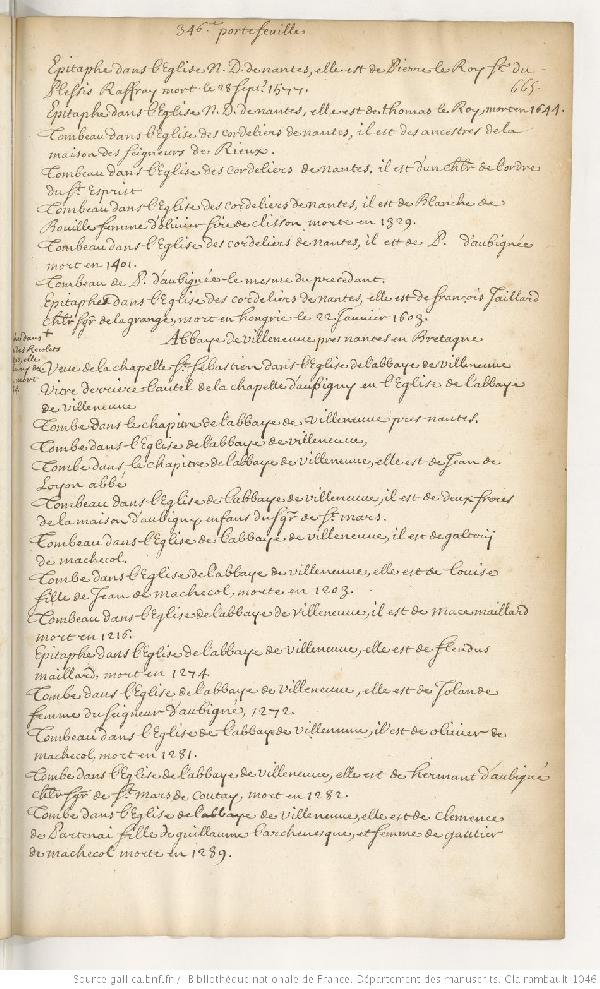 346.e portefeuille
Epitaphe dans l'Eglise N. D. de nantes, elle est de Pierre le Roy Sr. du
Plessis Raffray mort le 28 Sept. 1577.
665.
Epitaphe dans l'Eglise N. D. de nantes, elle est de thomas le Roy, mort en 1644.
Tombeau dans l'Eglise des cordeliers de nantes, il est des ancestres de la
maison des seigneurs de Rieux.
Tombeau dans l'Eglise des cordeliers de nantes, il est d'un chlr de l'ordre
du St. Esprit
Tombeau dans l'Eglise des cordeliers de nantes, il est de Blanche de
Bouille femme d'olivier sire de clisson, morte en 1329.
Tombeau dans l'Eglise des cordeliers de nantes, il est de P. d'aubignée
mort en 1401.
Tombeau de P. d'aubignée le mesme du precedant.
Epitaphe dans l'Eglise des cordeliers de nantes, elle est de françois Taillard
chlr sgr de la grange, mort en hongrie le 22 Janvier 1603.
Abbaye de villeneuve pres nantes en Bretagne
dans
des Recolets
elle
mort
Veue de la chapelle St. Sebastien dans l'Eglise de l'abbaye de villeneuve
Vitre derriere l'autel de la chapelle d'aubigny en l'Eglise de l'abbaye
de villeneuve
Tombe dans le chapitre de l'abbaye de villeneuve pres nantes.
Tombe dans l'Eglise de l'abbaye de villeneuve,
Tombe dans le chapitre de l'abbaye de villeneuve, elle est de Jean de
Loyon abbé
Tombeau dans l'Eglise de l'abbaye de villeneuve, il est de deux freres
de la maison d'aubigny enfans du sgr de St. mars.
Tombeau dans l'Eglise de l'abbaye de villeneuve, il est de
de machecol.
Tombe dans l'Eglise de l'abbaye de villeneuve, elle est de Louise
fille de Jean de machecol, morte en 1203.
Tombeau dans l'Eglise de l'abbaye de villeneuve, il est de mace maillard
mort en 1216.
Epitaphe dans l'Eglise de l'abbaye de villeneuve, elle est de
maillard, mort en 1274
Tombe dans l'Eglise de l'abbaye de villeneuve, elle est de Jolande
femme du seigneur d'aubigné, 1272.
Tombeau dans l'Eglise de l'abbaye de villeneuve, il est de olivier de
machecol, mort en 1281.
Tombe dans l'Eglise de l'abbaye de villeneuve, elle est de hermant d'aubigné
chlr sgr de St. Mars de Coutay, mort en 1282.
Tombe dans l'Eglise de l'abbaye de villeneuve, elle est de Clemence
de Partenai fille de guillaume l'archevesque, et femme de gautier
de machecol morte en 1289.
Source gallica.bnf.fr / Bibliothèque nationale de France. Département des manuscrits. Clairambault 1046